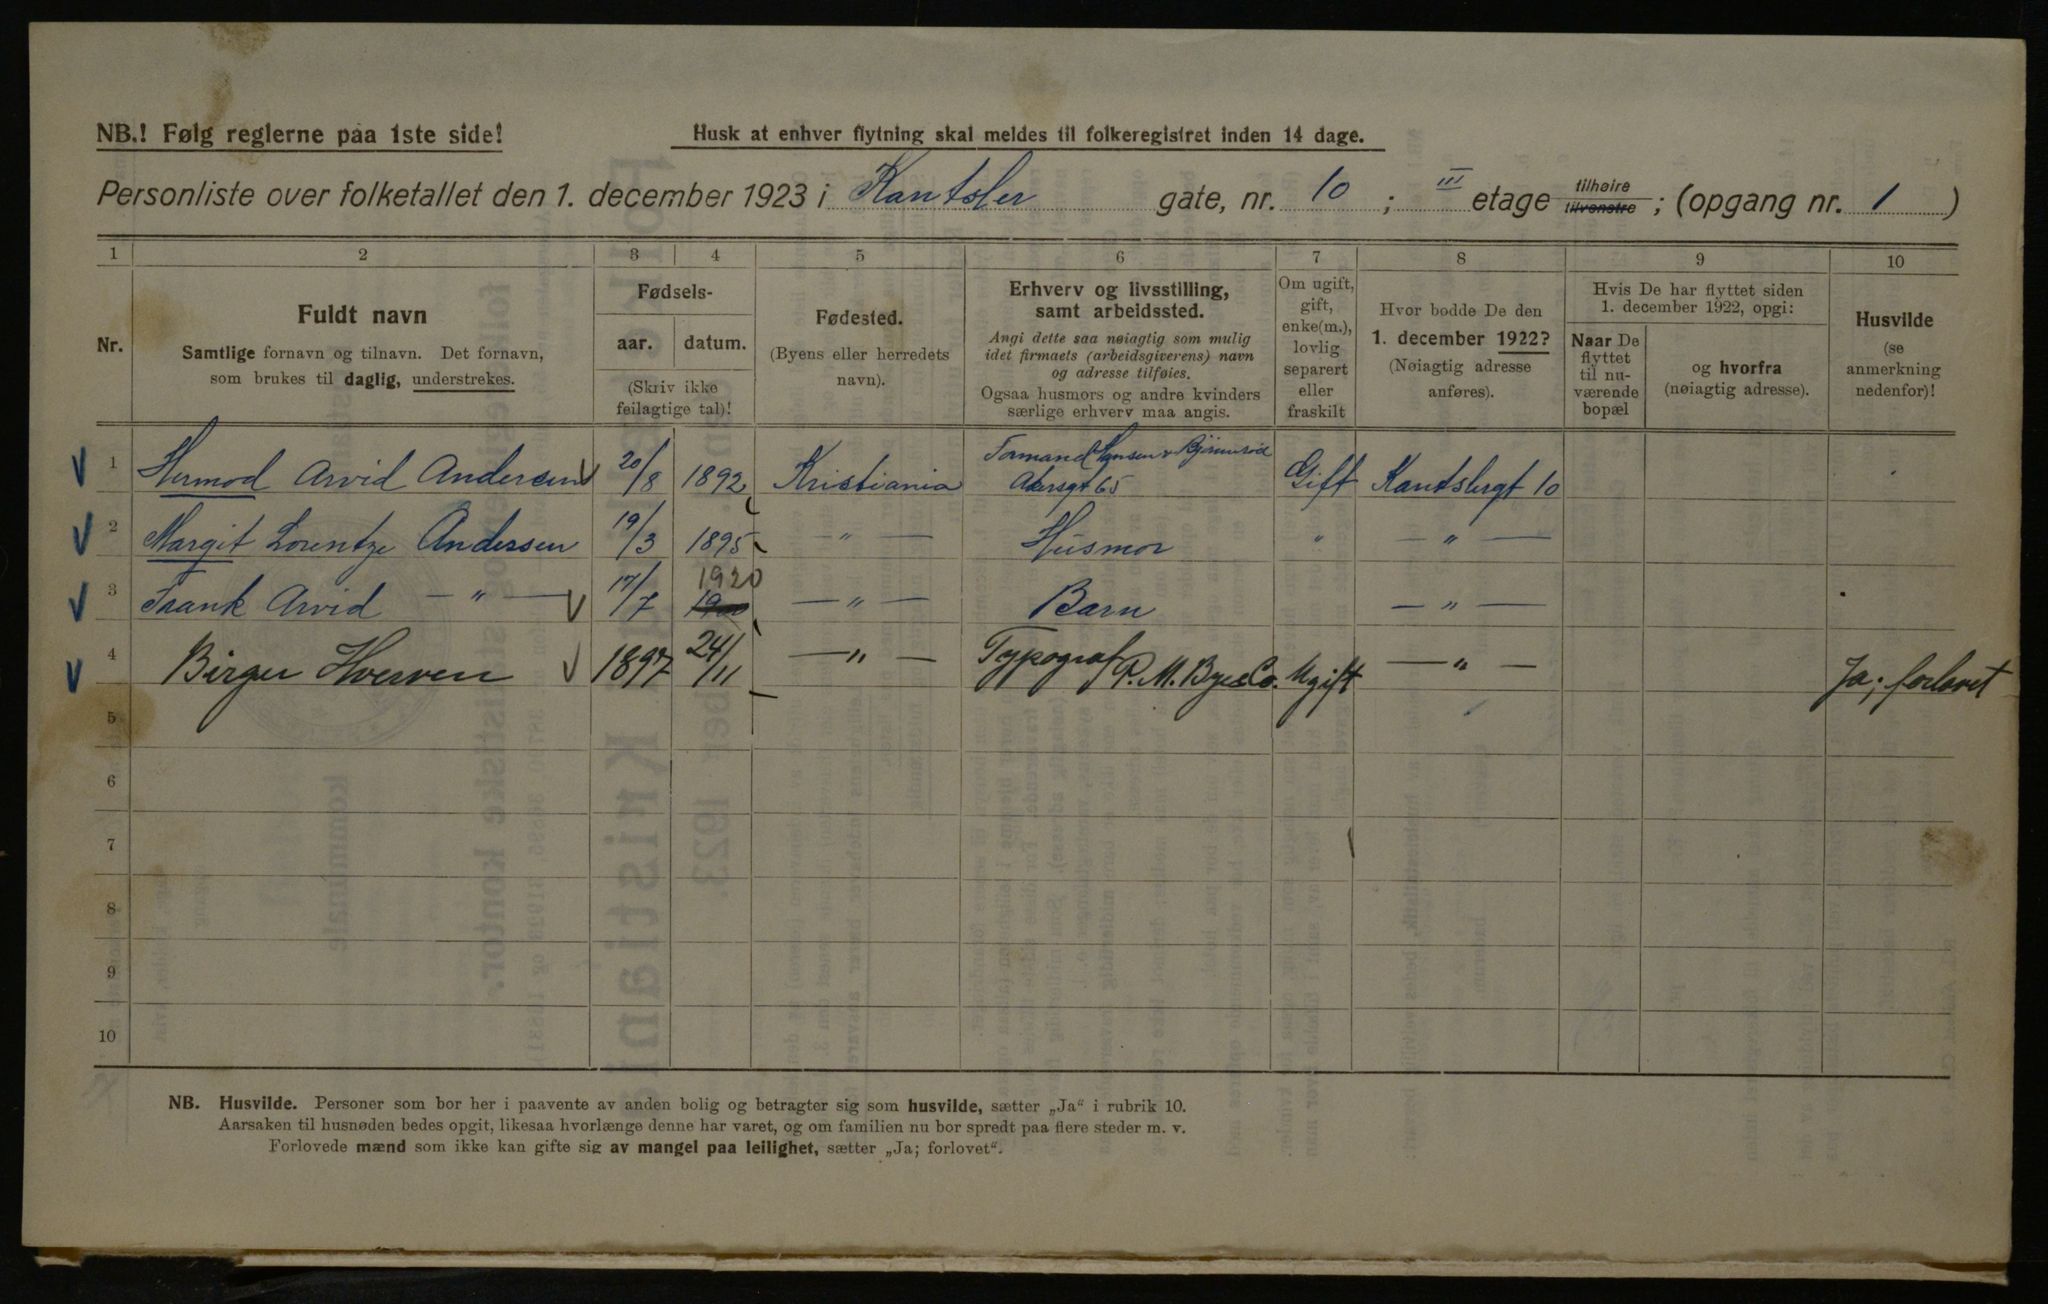 NB.! Følg reglerne paa 1ste side!
Husk at enhver flytning skal meldes til folkeregistret inden 14 dage.
Personliste over folketallet den 1. december 1923 i Kantsler gate, nr. 10 ; III etage tilhøire tilvenstre ; (opgang nr. 1 )
1 2 3 4 5 6 7 8 9 10
Nr.
Fuldt navn
Samtlige fornavn og tilnavn. Det fornavn,
som brukes til daglig, understrekes.
Fødsels-
aar. datum.
(Skriv ikke
feilagtige tal)!
Fødested.
(Byens eller herredets
navn).
Erhverv og livsstilling,
samt arbeidssted.
Angi dette saa nøiagtig som mulig
idet firmaets (arbeidsgiverens) navn
og adresse tilføies.
Ogsaa husmors og andre kvinders
særlige erhverv maa angis.
Om ugift,
gift,
enke(m.),
lovlig
separert
eller
fraskilt
Hvor bodde De den
1. december 1922?
(Nøiagtig adresse
anføres).
Hvis De har flyttet siden
1. december 1922, opgi:
Naar De
flyttet
til nu-
værende
bopæl
og hvorfra
(nøiagtig adresse).
Husvilde
(se
anmerkning
nedenfor)!
1 Hermod Arvid Andersen 20/8 1892 Kristiania Formand Hansen & Bjørnerød Akersgt 65 Gift Kantslergt 10
2 Margit Lorentze Andersen 19/3 1895 — " — Husmor " — " —
3 Frank Arvid — " — 17/7 1920 — " — Barn — " —
4 Birger Hverven 1897 24/11 — " — Typograf P. M. Bye & Co. Ugift — " — Ja; forlovet
5
6
7
8
9
10
NB. Husvilde. Personer som bor her i paavente av anden bolig og betragter sig som husvilde, sætter „Ja“ i rubrik 10.
Aarsaken til husnøden bedes opgit, likesaa hvorlænge denne har varet, og om familien nu bor spredt paa flere steder m. v.
Forlovede mænd som ikke kan gifte sig av mangel paa leilighet, sætter „Ja; forlovet“.